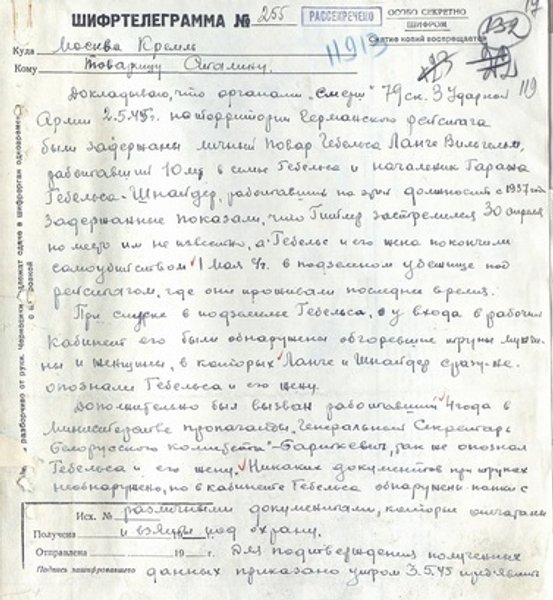 ШИФРТЕЛЕГРАММА № 255
РАССЕКРЕЧЕНО
ОСОБО СЕКРЕТНО
ШИФРОМ
Снятие копий воспрещается
132
11913
119
Куда Москва Кремль
Кому Товарищу Сталину.
Докладываю, что органами "Смерш" 79 ск. 3 Ударной
Армии 2.5.45г. на территории Германского рейхстага
были задержаны личный повар Гебельса Ланге Вильгельм,
работавший 10 лет в семье Гебельса и начальник гаража
Гебельса - Шнайдер, работавший на этой должности с 1937 года
Задержанные показали, что Гитлер застрелился 30 апреля
но место им не известно, а Гебельс и его жена покончили
самоубийством 1 мая с/г. в подземном убежище под
рейхстагом, где они проживали последнее время.
При спуске в подземелье Гебельса, у входа в рабочий
кабинет его были обнаружены обгоревшие трупы мужчи-
ны и женщины, в которых Ланге и Шнайдер сразу-же
опознали Гебельса и его жену.
Дополнительно был вызван работавший 4 года в
Министерстве пропаганды, Генеральный Секретарь
Белорусского комитета - так же опознал
Гебельса и его жену. Никаких документов при трупах
необнаружено, но в кабинете Гебельса обнаружены папки с
различными документами, которые опечатаны
и взяты под охрану.
Для подтверждения полученных
данных приказано утром 3.5.45 предъявить
Исх. №
Получена
Отправлена 19 г.
Подпись зашифровавшего
разборчиво от руки. Черновики
сдаче в шифрорган одновремен